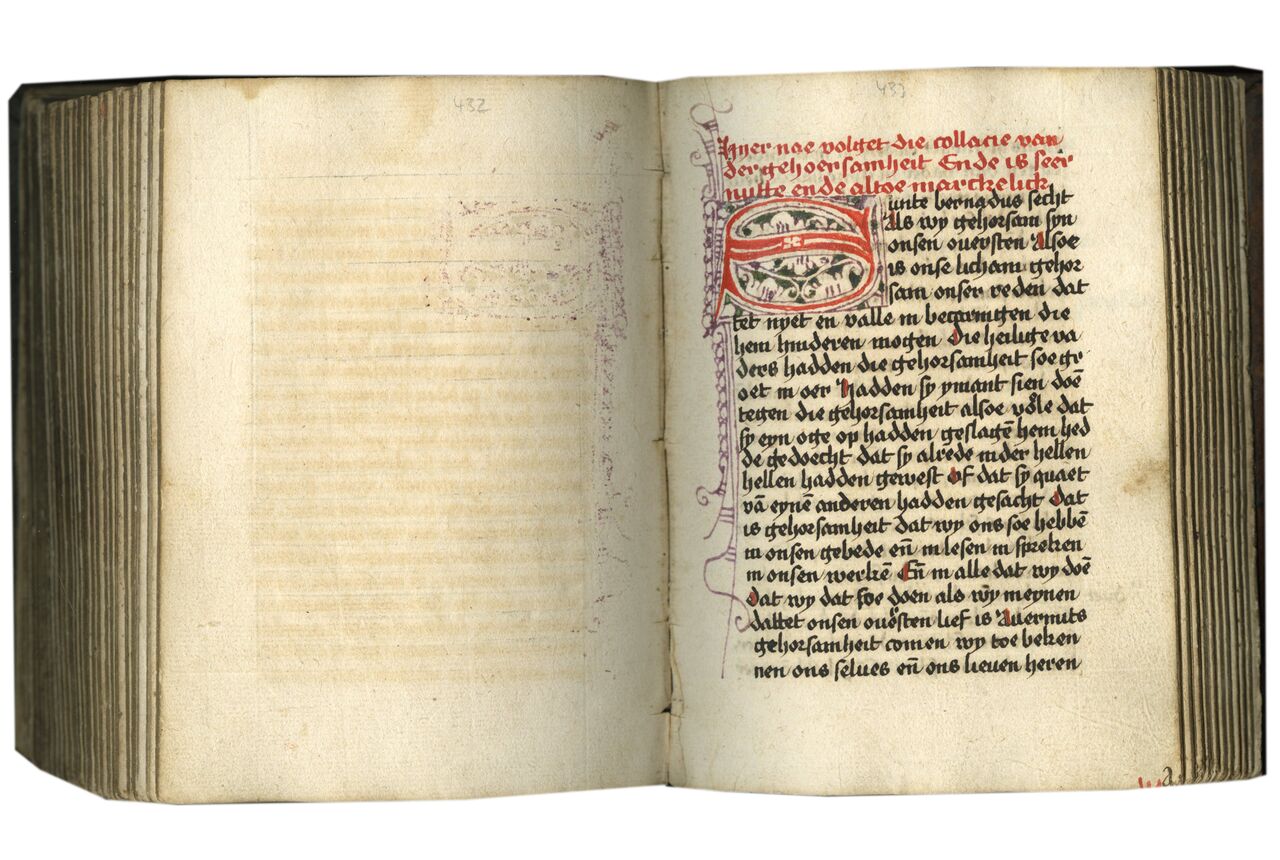 432
433
Hyer nae volget die collacie van
der gehoersamheit Ende is seer
nutte ende altoe marckelick
Sunte bernadus secht
Als wy gehorsam syn
onsen ouersten Alsoe
is onse licham gehor
sam onser reden dat
tet nyet en valle in begeringen die
hem hinderen mogen Die heilige va
ders hadden die gehorsamheit soe gr
oet in oer Hadden sy ymant sien doē
tegen die gehorsamheit alsoe völe dat
sy eyn oge op hadden geslagē hem hed
de gedoecht dat sy alrede in der hellen
hellen hadden gewest Of dat sy quaet
vā eynē anderen hadden gesacht Dat
is gehorsamheit dat wy ons soe hebbē
in onsen gebede eñ in lesen in spreken
in onsen werkē Eñ in alle dat wy doē
Dat wy dat soe doen als wy meynen
dattet onsen ouesten lief is Auermits
gehorsamheit comen wy toe beken
nen ons selues eñ ons lieuen heren